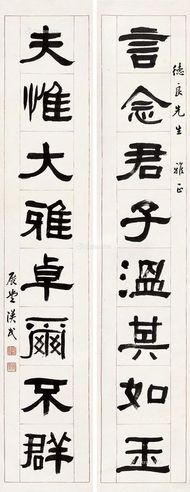 言念君子溫其如玉
德良先生雅正
夫惟大雅卓爾不群
展堂漢民